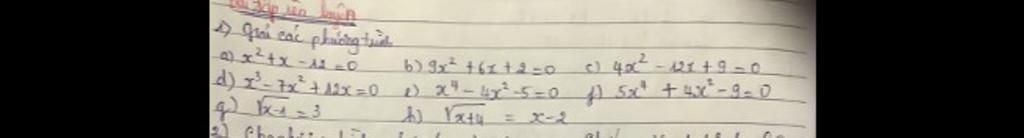 Bài tập rèn luyện
1) Giải các phương trình
a) x² + x - 12 = 0 b) 9x² + 6x + 2 = 0 c) 4x² - 12x + 9 = 0
d) x³ - 7x² + 12x = 0 e) x⁴ - 4x² - 5 = 0 f) 5x⁴ + 4x² - 9 = 0
g) √x-1 = 3 h) √x+4 = x - 2
2)